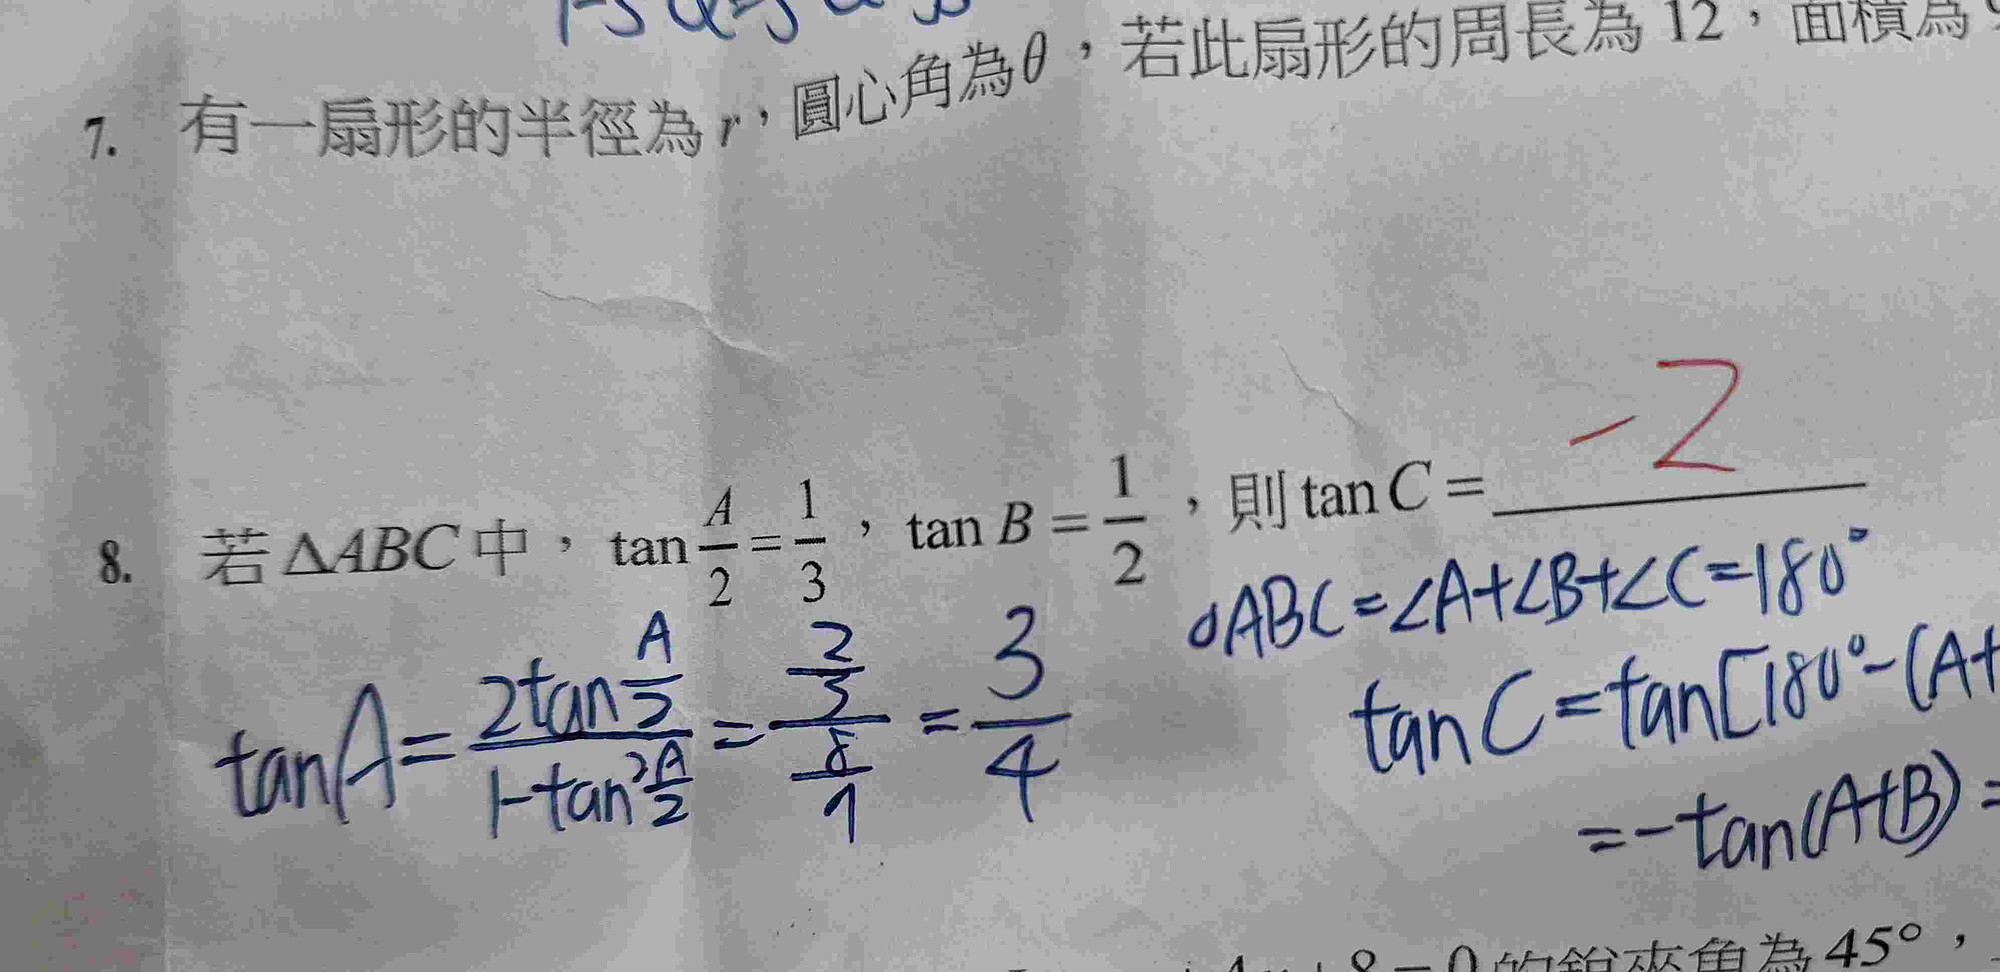 7. 有一扇形的半徑為 r，圓心角為θ，若此扇形的周長為 12，面積為
-2
8. 若 ΔABC 中，tan A/2 = 1/3，tan B = 1/2，則 tan C = ______
△ABC = ∠A+∠B+∠C = 180°
tan A = 2tan A/2 / 1-tan² A/2 = 2/3 / 8/9 = 3/4
tan C = tan[180°-(A+
= -tan(A+B) =
的銳夾角為 45°，